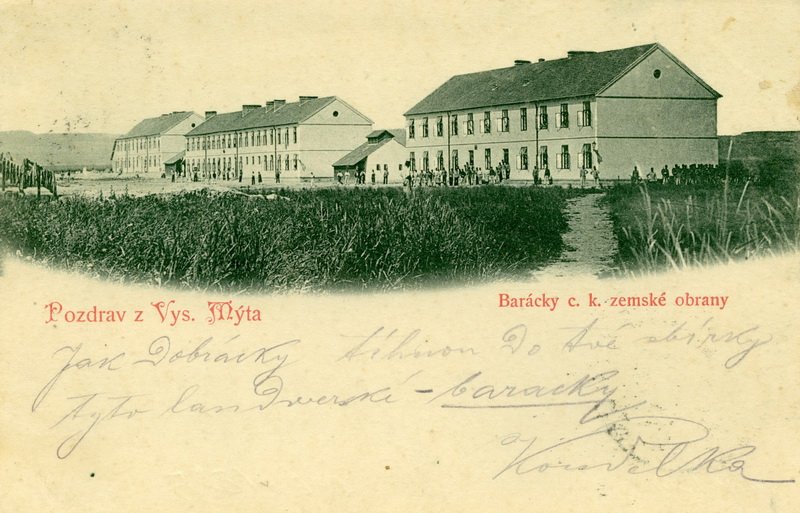 Pozdrav z Vys. Mýta
Barácky c. k. zemské obrany
Jak Dobrácky táhnou Do tvé sbírky
tyto landverské-baracky